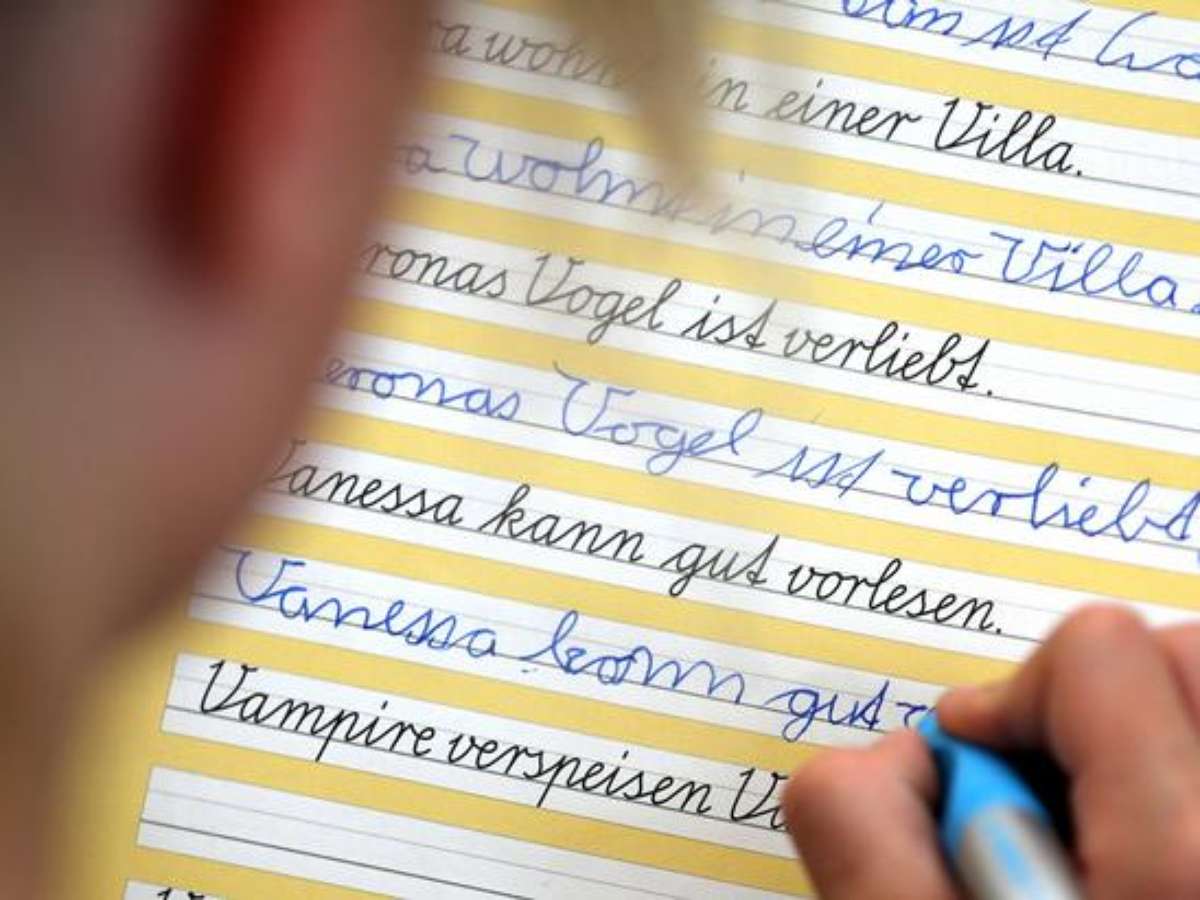 ist
in einer Villa.
in einer Villa.
ronas Vogel ist verliebt.
eronas Vogel ist verliebt
Vanessa kann gut vorlesen.
Vanessa kann gut
Vampire verspeisen